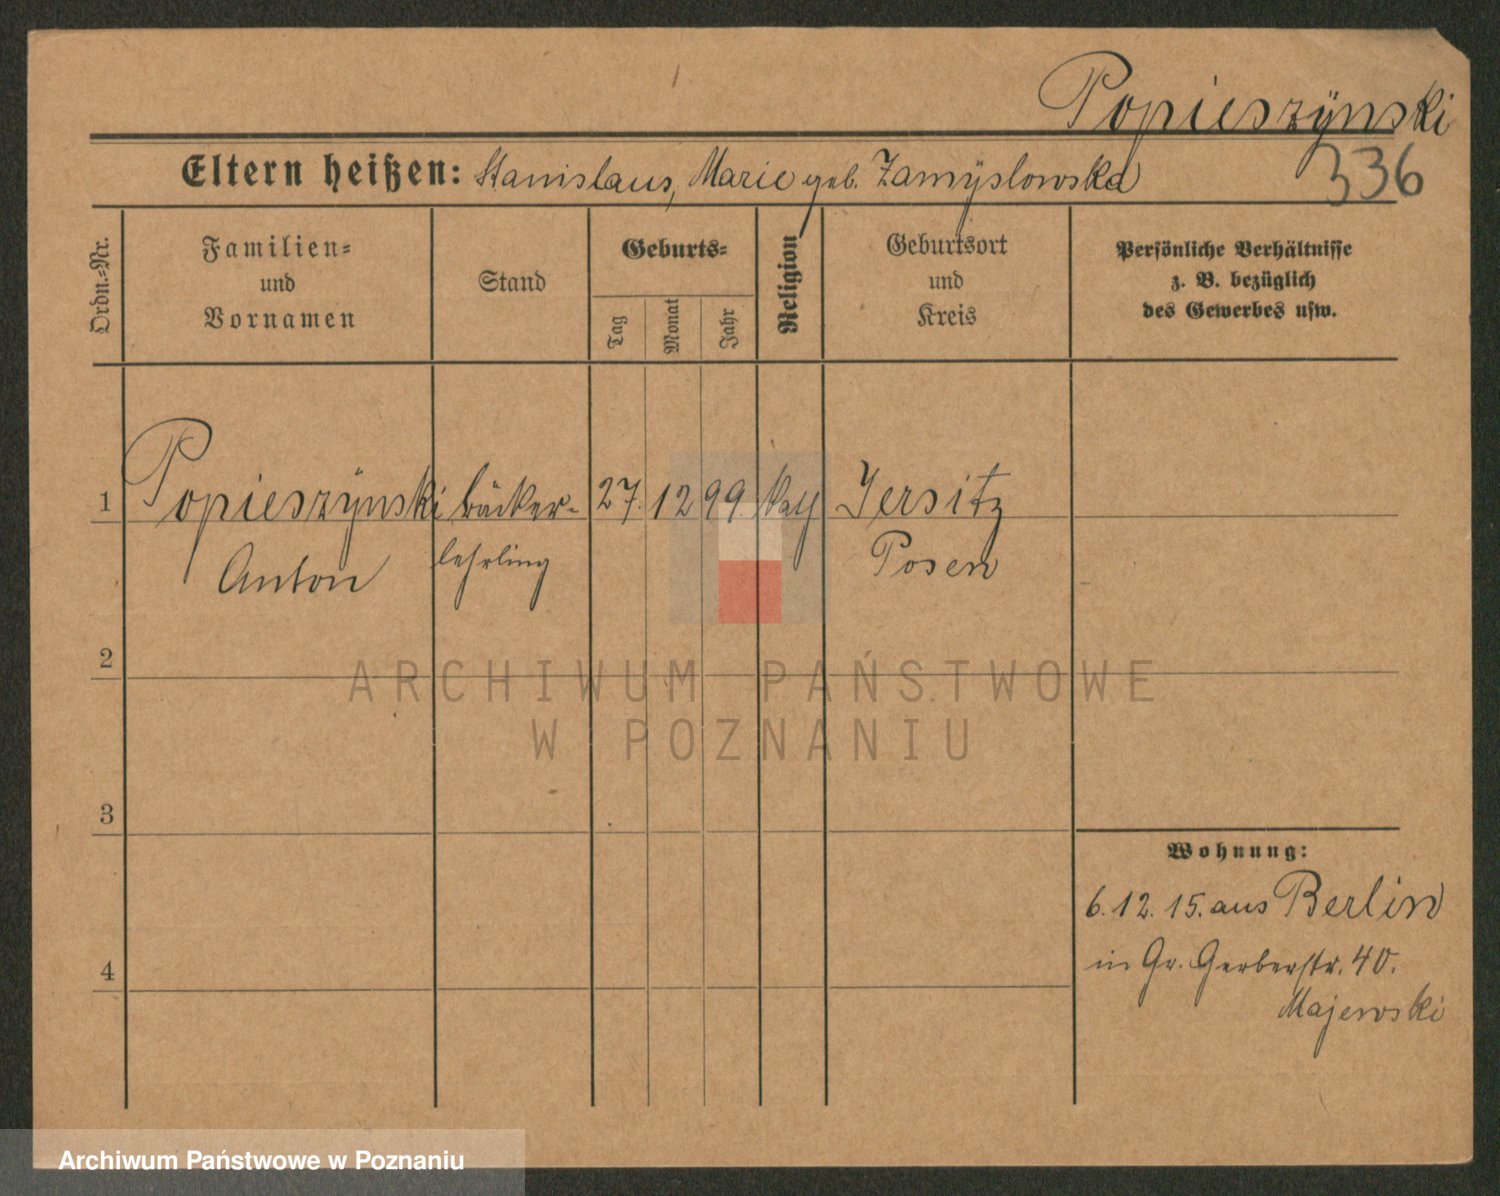 Popieszÿnski
336
Eltern heißen: Stanislaus, Marie geb. Zamÿslowska
Ordn.-Nr.
Familien-
und
Vornamen
Stand
Geburts-
Tag
Monat
Jahr
Religion
Geburtsort
und
Kreis
Persönliche Verhältnisse
z. B. bezüglich
des Gewerbes usw.
1 Popieszÿnski bäcker- 27. 12 99 kath Jersitz
Anton lehrling Posen
2
3
4
Wohnung:
6. 12. 15. aus Berlin
in Gr. Gerberstr. 40.
Majewski
ARCHIWUM PAŃSTWOWE
W POZNANIU
Archiwum Państwowe w Poznaniu